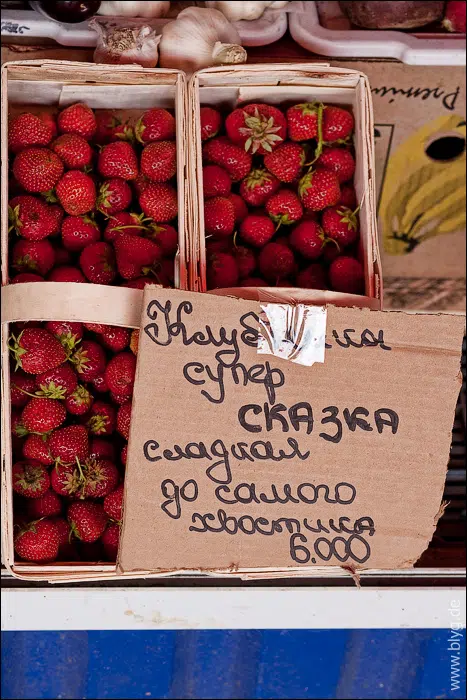 Premium
Клубника
супер
СКАЗКА
сладкая
до самого
хвостика
6.000
www.blyg.de